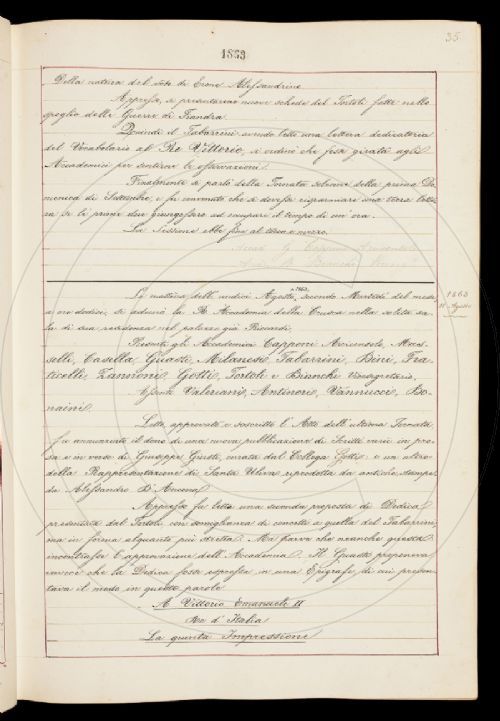 35.
1863
Della natura del voto di Erone Alessandrino.
Appresso, si presentarono nuove schede del Tortoli fatte nello
spoglio delle Guerre di Fiandra.
Quindi il Tabarrini avendo letto una lettera dedicatoria
del Vocabolario al Re Vittorio, si ordinò che fosse girata agli
Accademici per sentirne le osservazioni.
Finalmente si parlò della Tornata solenne della prima Do-
menica di Settembre, e fu convenuto che si dovesse risparmiare una terza lettu-
ra se le prime due giungessero ad occupare il tempo di un'ora.
La Sessione ebbe fine al tocco e mezzo.
La mattina dell'undici Agosto 1863, secondo Martedì del mese,
a ore dodici, si adunò la R. Accademia della Crusca nella solita sa-
la di sua residenza nel palazzo già Riccardi.
1863
11 Agosto
Presenti gli Accademici Capponi Arciconsolo,
Casella, Guasti, Milanesi, Tabarrini, Bini, Fra-
ticelli, Zannoni, Gotti, e Tortoli e Bianchi Vicesegretario.
Assenti Valeriani, Antinori, Vannucci, Bo-
naini.
Letto approvato e soscritto l'Atto dell'ultima Tornata
fu annunziato il dono di una nuova pubblicazione di Scritti varii in pro-
sa e in verso di Giuseppe Giusti, curata dal Collega Gotti; e un altro
della Rappresentazione di Santa Uliva riprodotta da antiche stampe
da Alessandro D'Ancona.
Appresso fu letta una seconda proposta di Dedica
presentata dal Tortoli con somiglianza di concetti a quella del Tabarrini,
ma in forma alquanto più stretta. Ma parve che neanche questa
incontrasse l'approvazione dell'Accademia. Il Guasti proponeva
invece che la Dedica fosse espressa in una Epigrafe, di cui presen-
tava il modo in queste parole
A Vittorio Emanuele II
Re d'Italia
La quinta Impressione